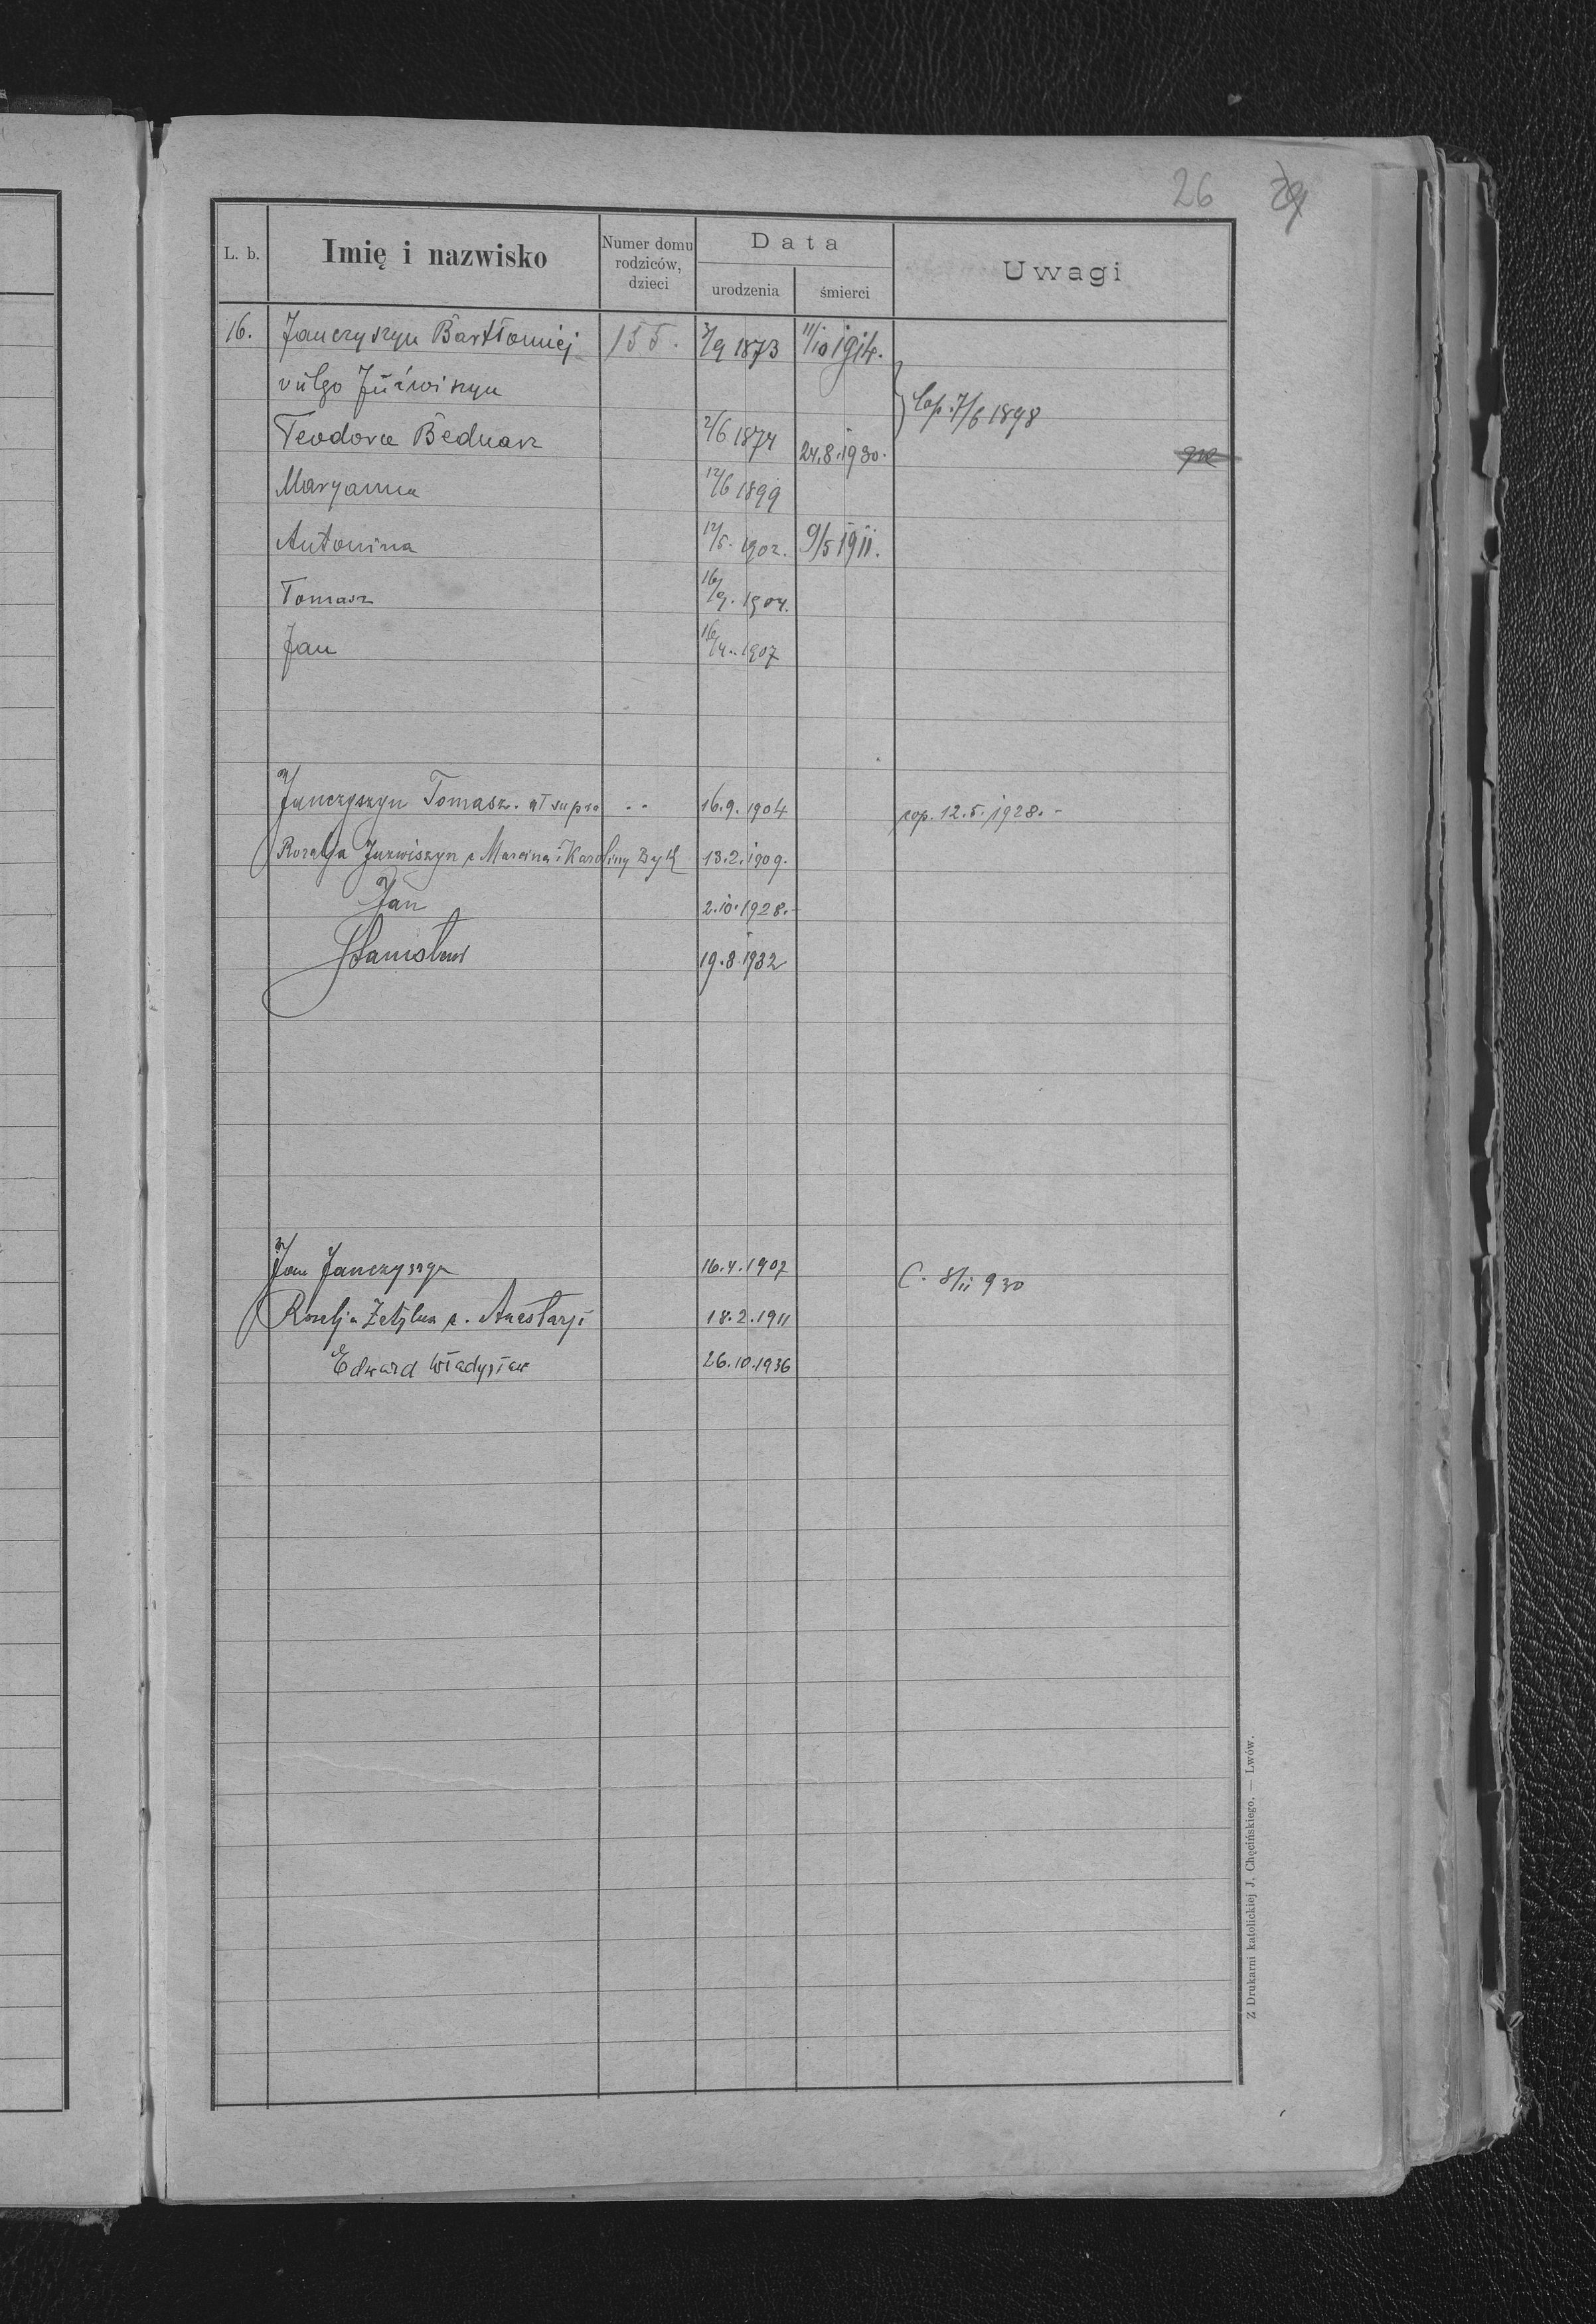 26
L. b. Imię i nazwisko Numer domu rodziców, dzieci Data urodzenia śmierci Uwagi
16. Janczyszyn Bartłomiej 155. 3/9 1873 11/10 1914.
vulgo Juźwiszyn
Cop. 7/6 1898
Teodora Bednarz 2/6 1874 24.8.1930.
Maryanna 12/6 1899
Antonina 12/5. 1902. 9/5 1911.
Tomasz 16/9. 1904.
Jan 16/4. 1907
Janczyszyn Tomasz. ut supra " 16.9.1904 cop. 12.5.1928.-
Rozalja Juzwiszyn c Marcina i Karoliny Byk 13.2.1909.
Jan 2.10.1928.-
Stanisław 19.8.1932
Jan Janczyszyn 16.4.1907 C. 8/11 930
Rozalja c. Anastazji 18.2.1911
Edward Władysław 26.10.1936
Z Drukarni katolickiej J. Chęcińskiego. — Lwów.